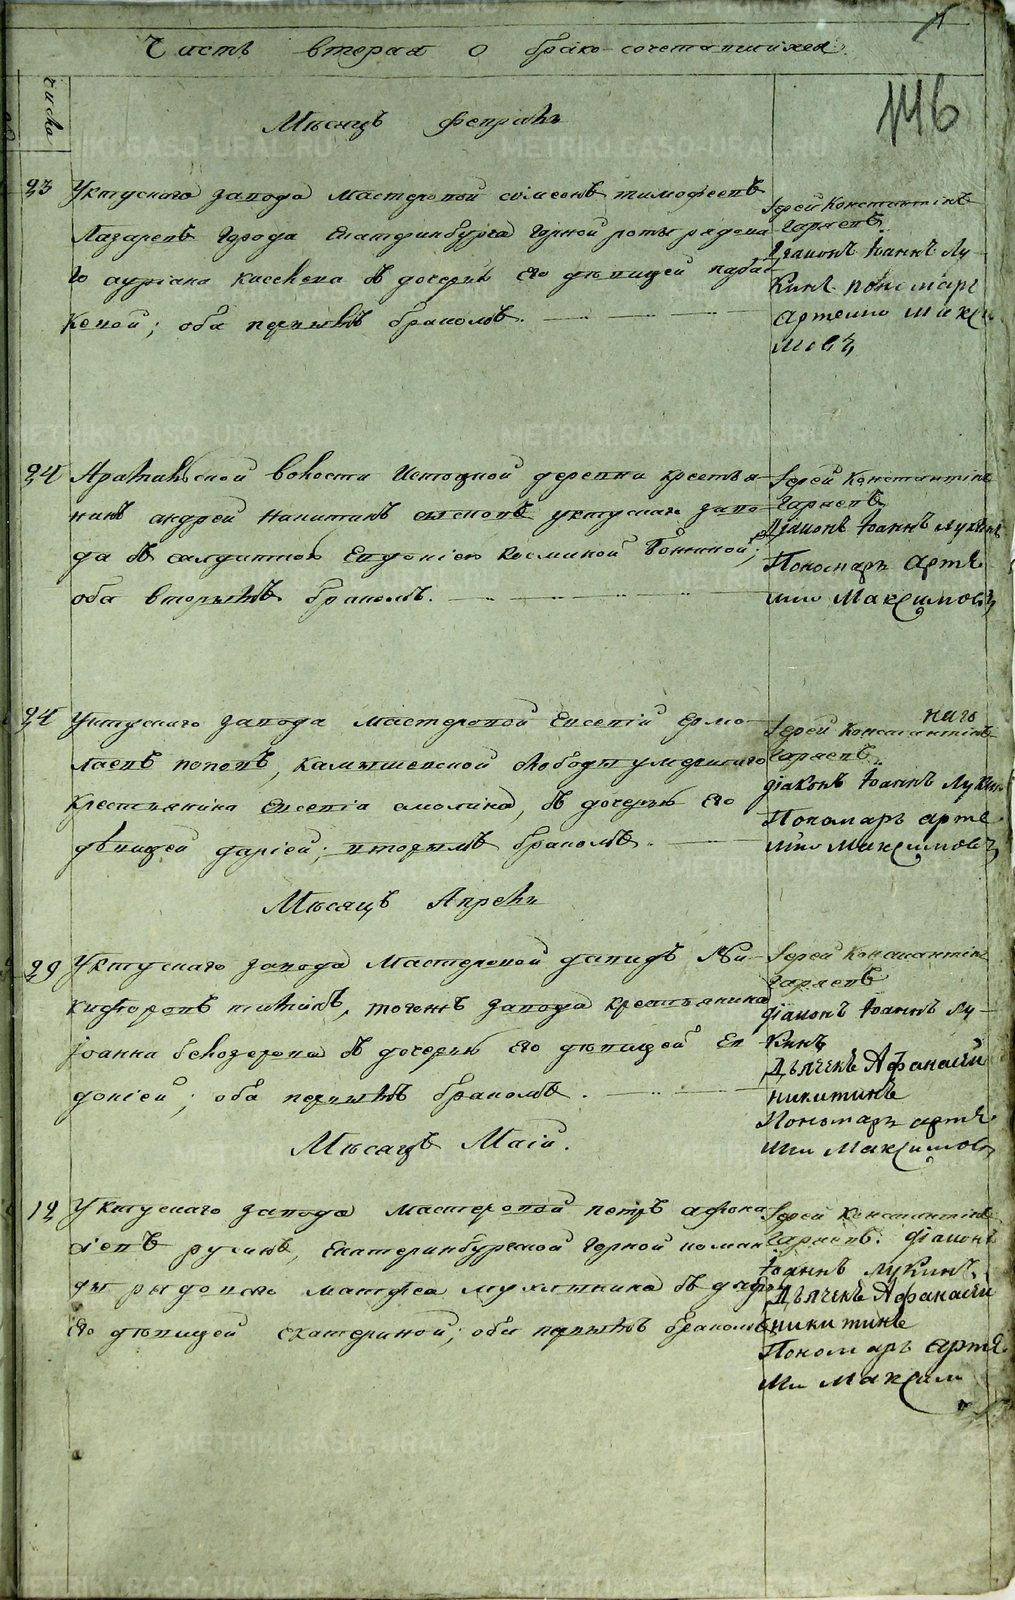 Часть вторая о брако сочетавшихся.
146
числа
Мѣсяцъ февраль
23 Уктускаго завода мастеровой симеонъ тимофеевъ
Лазаревъ города Екатеринбурга горной роты рядова
го
его дѣвицей варва
рою; оба первымъ бракомъ.
Іерей Константинъ
Діаконъ Іоаннъ Лу
кинъ пономарь
артемии макси
мовъ
24 Арамильской волости Истоцкой деревни крестья
нинъ андрей никитинъ уктускаго заво
да съ салдаткой Евдокіею Косминой; 
оба вторымъ бракомъ.
Іерей Константинъ
Діаконъ Іоаннъ Лукинъ
Пономарь Арте
мии Максимовъ
24 Уктускаго завода мастеровой Евсевій Ермо
лаевъ поповъ, Камышевской слободы умершаго
крестьянина Евсевіа смолина, съ дочерью его
дѣвицей даріей; вторымъ бракомъ.
Іерей Константинъ
діаконъ Іоаннъ Лукинъ
Пономарь арте
мии Максимовъ
Мѣсяцъ Апрель
29 Уктускаго завода Мастеровой давидъ Ни
кифоровъ тогожъ завода крестьянина
Іоанна белозерова съ дочерью его дѣвицей Ев
докіей; оба первымъ бракомъ.
Іерей Константинъ
діаконъ Іоаннъ Лу
кинъ
Дьячекъ Афанасеи
никитинъ
Пономарь арте
мии Максимовъ
Мѣсяцъ Маій.
12 Уктускаго завода Мастеровой петръ афона
сіевъ русинъ, Екатеринбургской горной коман
ды рядоваго матфеа съ дочерью
его дѣвицей екатериной; оба первымъ бракомъ
Іерей Константинъ
діаконъ
Іоаннъ Лукинъ
Дьячекъ Афанасеи
никитинъ
Пономарь арте
мии Максим
METRIKI.GASO-URAL.RU